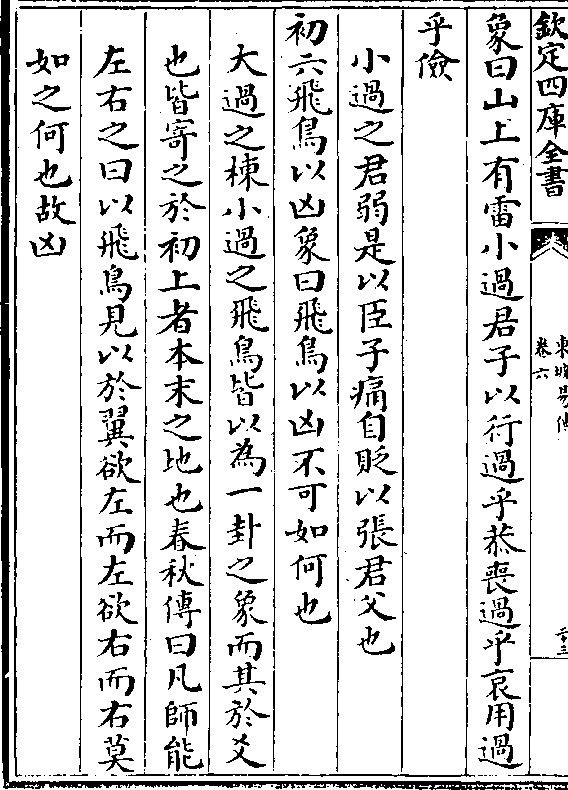 欽定四庫全書
東坡易傳
卷六
二十三
象曰山上有雷小過君子以行過乎恭喪過乎哀用過
乎儉
小過之君弱是以臣子痛自貶以張君父也
初六飛鳥以凶象曰飛鳥以凶不可如何也
大過之棟小過之飛鳥皆以為一卦之象而其於爻
也皆寄之於初上者本末之地也春秋傳曰凡師能
左右之曰以飛鳥見以於翼欲左而左欲右而右莫
如之何也故凶